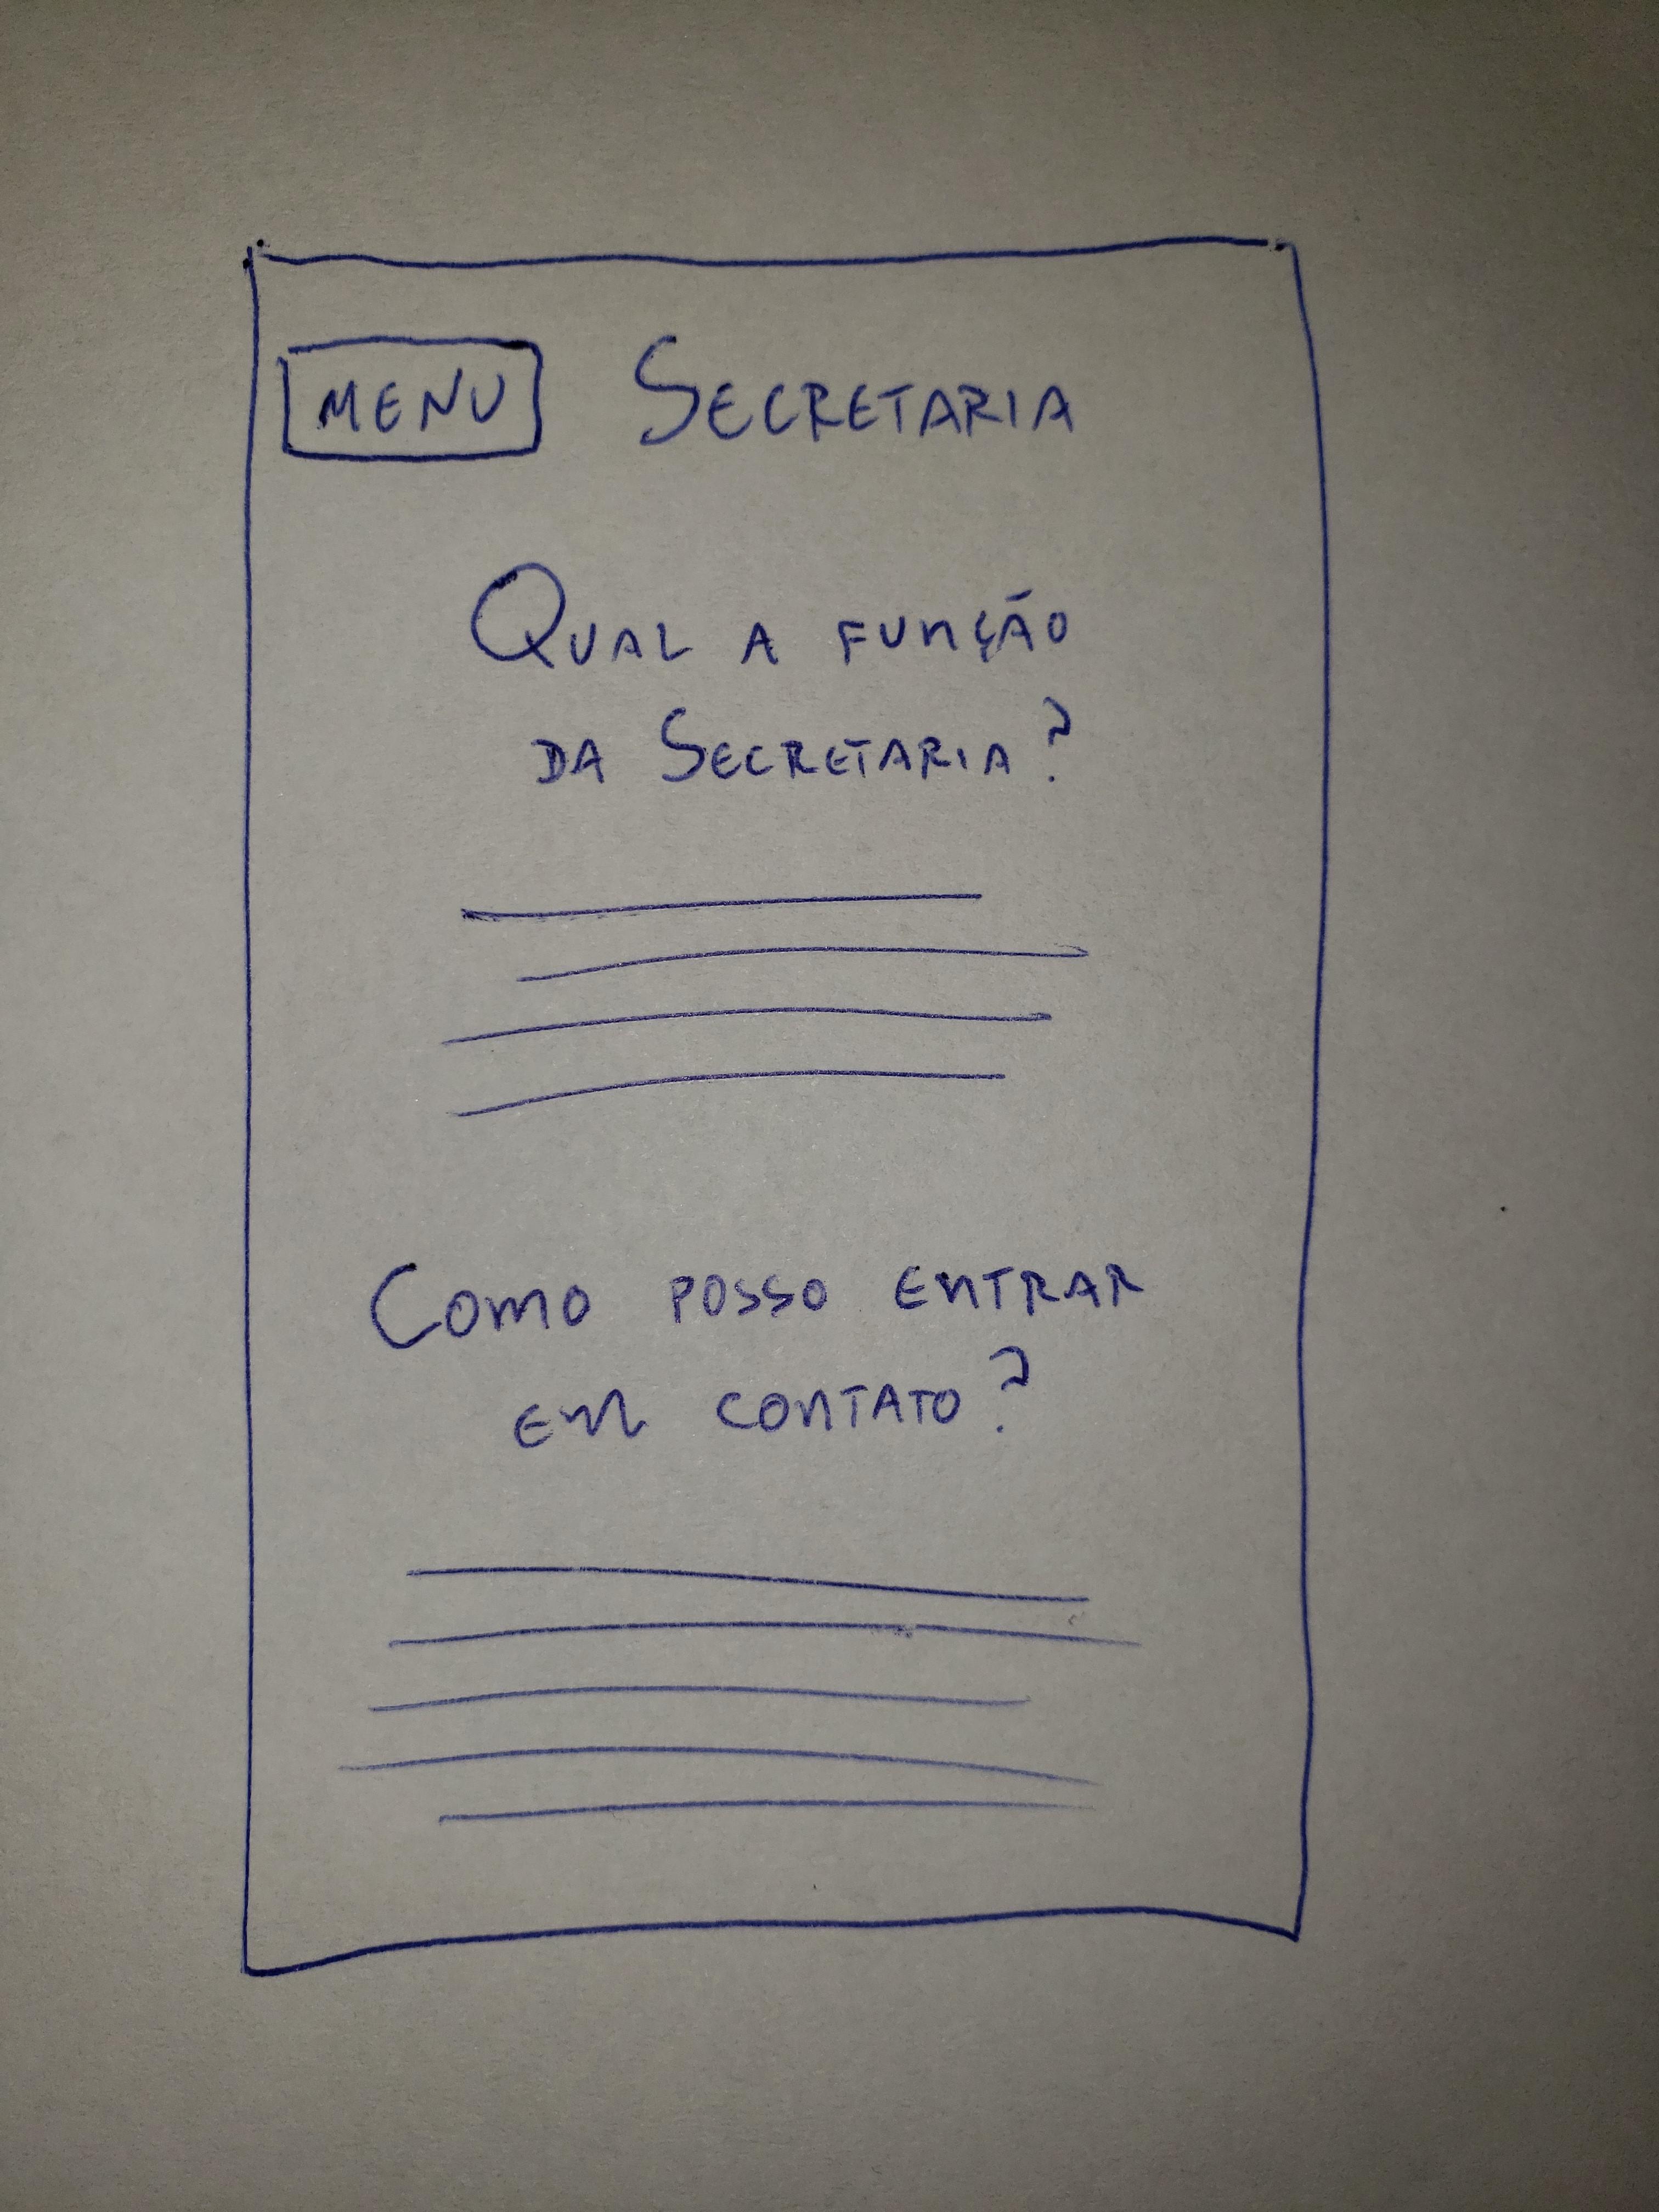 MENU SECRETARIA
QUAL A FUNÇÃO
DA SECRETARIA?
COMO POSSO ENTRAR
EM CONTATO?